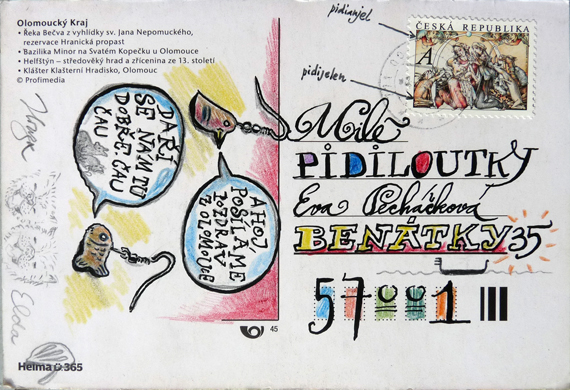 Olomoucký Kraj
• Řeka Bečva z vyhlídky sv. Jana Nepomuckého,
rezervace Hranická propast
• Bazilika Minor na Svatém Kopečku u Olomouce
• Helfštýn – středověký hrad a zřícenina ze 13. století
• Klášter Klašterní Hradisko, Olomouc
© Profimedia
pidianjel
pidijelen
ČESKÁ REPUBLIKA
A
DAŘÍ
SE NÁM TU
DOBŘE. ČAU
ČAU
AHOJ
POSÍLÁME
POZDRAV
Z OLOMOUCE
Milé
PIDILOUTKY
Eva Pecháčková
BENÁTKY 35
57001
Elda
45
Helma 365